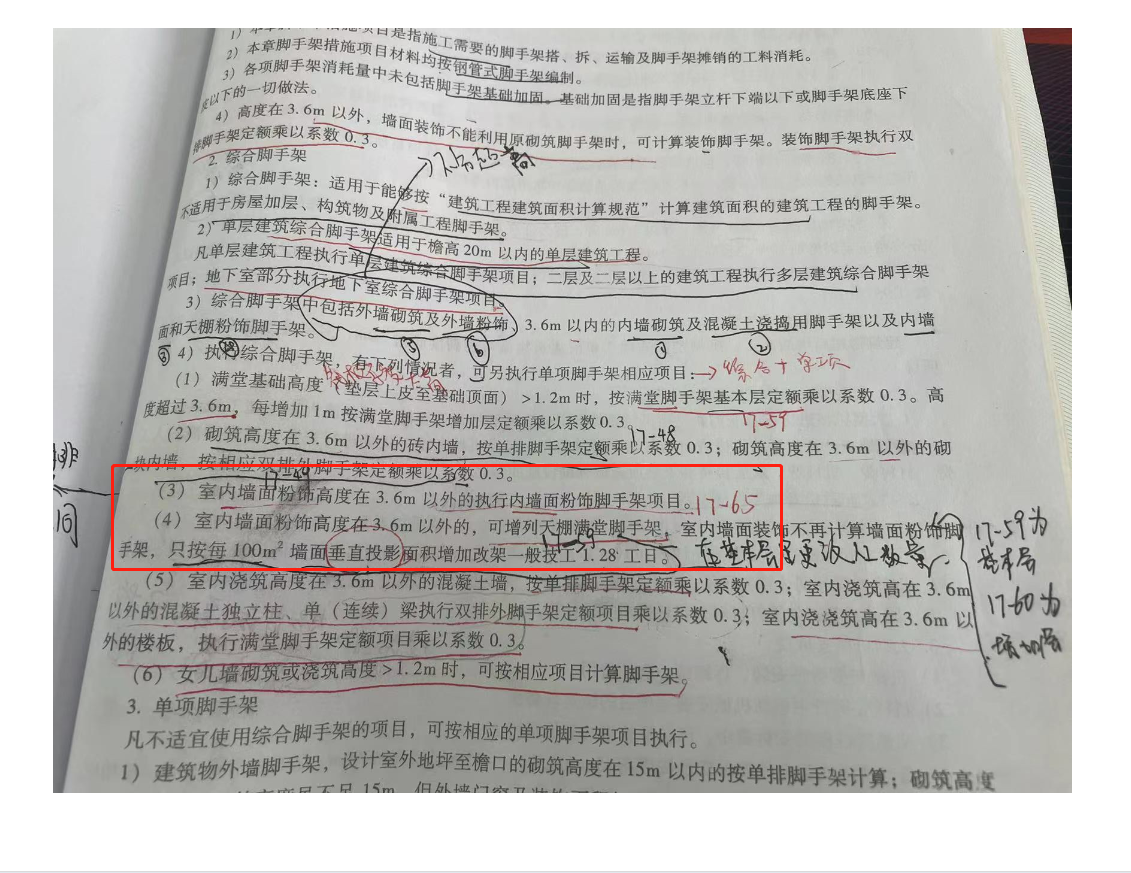 项目是指施工需要的脚手架搭、拆、运输及脚手架摊销的工料消耗。
2）本章脚手架措施项目材料均按钢管式脚手架编制。
3）各项脚手架消耗量中未包括脚手架基础加固。基础加固是指脚手架立杆下端以下或脚手架底座下
以下的一切做法。
4）高度在3.6m以外，墙面装饰不能利用原砌筑脚手架时，可计算装饰脚手架。装饰脚手架执行双
排脚手架定额乘以系数0.3。
2. 综合脚手架
1）综合脚手架：适用于能够按“建筑工程建筑面积计算规范”计算建筑面积的建筑工程的脚手架。
不适用于房屋加层、构筑物及附属工程脚手架。
2）单层建筑综合脚手架适用于檐高20m以内的单层建筑工程。
凡单层建筑工程执行单层建筑综合脚手架项目；二层及二层以上的建筑工程执行多层建筑综合脚手架
项目；地下室部分执行地下室综合脚手架项目。
3）综合脚手架中包括外墙砌筑及外墙粉饰、3.6m以内的内墙砌筑及混凝土浇捣用脚手架以及内墙
面和天棚粉饰脚手架。
③ ⑤ ⑥ ① ②
4）执行综合脚手架，有下列情况者，可另执行单项脚手架相应项目：
→综合+单项
（1）满堂基础高度（垫层上皮至基础顶面）>1.2m时，按满堂脚手架基本层定额乘以系数0.3。高
17-59
度超过3.6m，每增加1m按满堂脚手架增加层定额乘以系数0.3。
17-48
（2）砌筑高度在3.6m以外的砖内墙，按单排脚手架定额乘以系数0.3；砌筑高度在3.6m以外的砌
块内墙，按相应双排外脚手架定额乘以系数0.3。
17-49
（3）室内墙面粉饰高度在3.6m以外的执行内墙面粉饰脚手架项目。
17-65
（4）室内墙面粉饰高度在3.6m以外的，可增列天棚满堂脚手架，室内墙面装饰不再计算墙面粉饰脚
17-59
手架，只按每100m²墙面垂直投影面积增加改架一般技工1.28工日。
在基本层里更改人工数量
17-59为
基本层
17-60为
增加层
（5）室内浇筑高度在3.6m以外的混凝土墙，按单排脚手架定额乘以系数0.3；室内浇筑高在3.6m
以外的混凝土独立柱、单（连续）梁执行双排外脚手架定额项目乘以系数0.3；室内浇浇筑高在3.6m以
外的楼板，执行满堂脚手架定额项目乘以系数0.3。
（6）女儿墙砌筑或浇筑高度>1.2m时，可按相应项目计算脚手架。
3. 单项脚手架
凡不适宜使用综合脚手架的项目，可按相应的单项脚手架项目执行。
1）建筑物外墙脚手架，设计室外地坪至檐口的砌筑高度在15m以内的按单排脚手架计算；砌筑高度